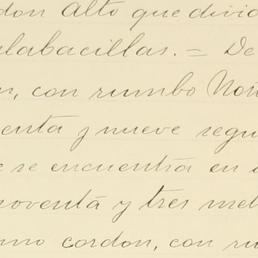 don Alto que divid
alabacillas. = De
n, con rumbo Nor
enta y nueve segu
e se encuentra en
noventa y tres met
mo cordon, con ru